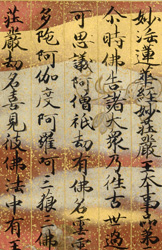 妙法蓮華經妙荘嚴王本事品
尒時佛告諸大衆乃往古世過
可思議阿僧祇劫有佛名雲雷
多陀阿伽度阿羅呵三藐三佛
荘嚴劫名喜見彼佛法中有王